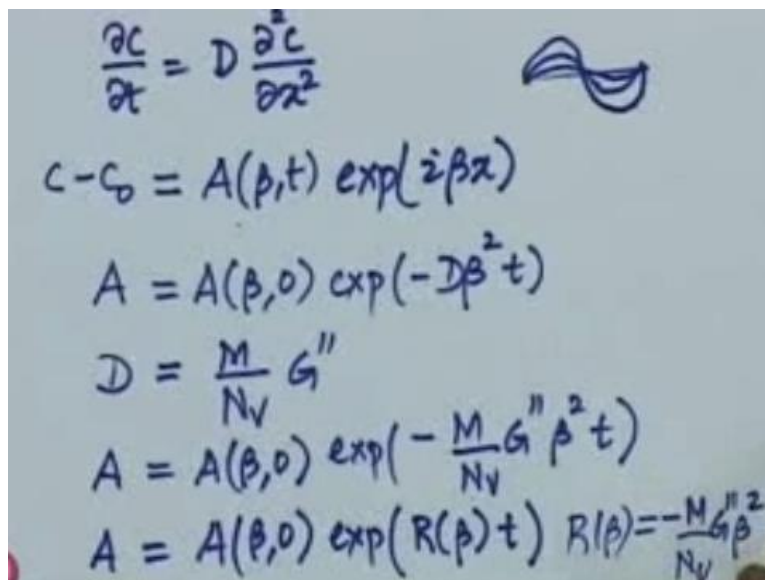 ∂c/∂t = D ∂²c/∂x²
c-c₀ = A(β,t) exp(iβx)
A = A(β,0) exp(-Dβ²t)
D = M/Nᵥ G"
A = A(β,0) exp(-M/Nᵥ G"β²t)
A = A(β,0) exp(R(β)t) R(β)=-M/Nᵥ G"β²